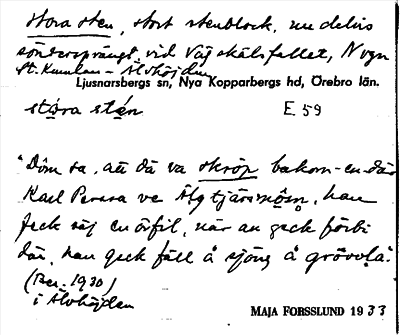 stora sten, stort stenblock, nu delvis
söndersprängt, vid Vägskälsfallet, N vgn
St. Kumlan - Älvhöjden
Ljusnarsbergs sn, Nya Kopparbergs hd, Örebro län.
stɷra stén E 59
"Dôm sa, att dä va skröp bakom en där
Karl Persa ve Älgtjärnsmôsn, han
feck säj en örfil, när an geck förbi
där, han geck fäll å sjöng å gröovla."
(Ber. 1930)
i Älvhöjden
MAJA FORSSLUND 1933